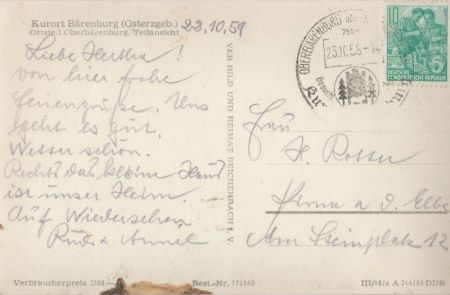 Kurort Bärenburg (Osterzgeb.)
Ortsteil Oberbärenburg, Teilansicht
22.10.59
Liebe Hertha!
von hier frohe
Feriengrüße. Uns
geht es gut,
Wetter schön.
Rechts das kleine Haus
ist unser Heim.
Auf Wiedersehen
Rudi + Annel
VEB BILD UND HEIMAT REICHENBACH I. V.
OBERBÄRENBURG
23.10.59.-14
10
DEUTSCHE
DEMOKRATISCHE REPUBLIK
Frau
H. Rotter
Pirna a. d. Elbe
Am Steinplatz 12
Verbraucherpreis DM
Best.-Nr. 12/360
III/18/6 A 246/59 DDR